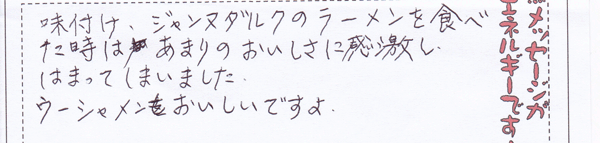 味付け、ジャンヌダルクのラーメンを食べ
た時は あまりのおいしさに感激し
はまってしまいました.
ウーシャメンもおいしいですよ.
メッセージが
エネルギーです